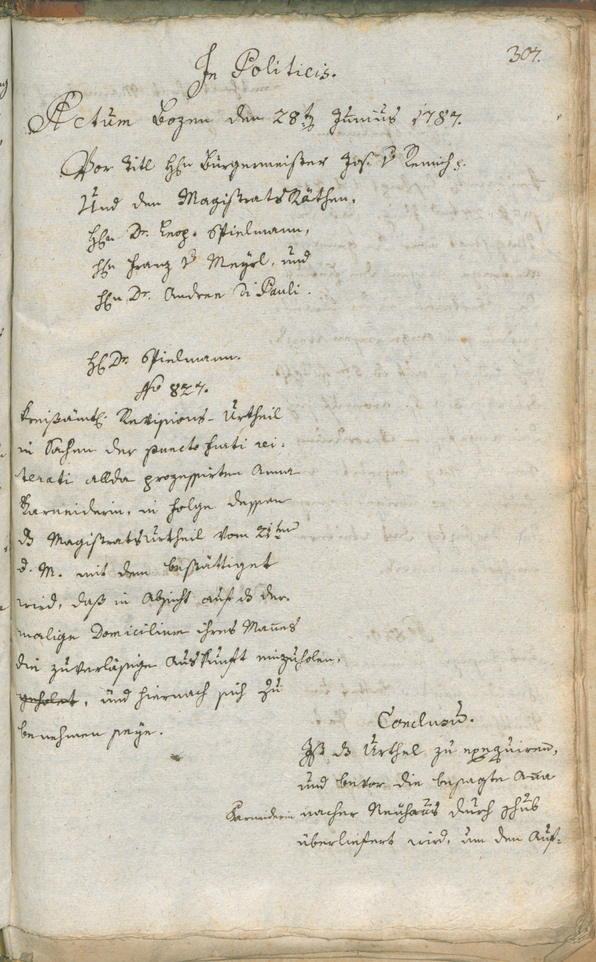 307.
In Politicis.
Actum Bozen den 28t Junius 1787.
Vor Titl Hℓn Burgermeister Jos. v Remich:
Und den Magistrats Räthen,
Hℓn Dr. Leop. Spielmann,
Hℓn Franz v Meyrl, und
Hℓn Dr. Andree Di Pauli.
Hℓ Dr. Spielmann.
No 827.
Kreißämtl. Revisions-Urtheil
in Sachen der puncto furti rei-
terati allda prozessirten Anna
Karneiderin, in Folge dessen
ds Magistratsurtheil vom 21ten
d. M. mit dem bestättiget
wird, daß in Absicht auf ds der-
malige Domicilium ihres Mañes
die zuverläsige Auskunft einzuholen,
geholet, und hiernach sich zu
benehmen seye.
Conclusū.
Ist ds Urthel zu exequiren,
und bevor die besagte Aña
Karneiderin nacher Neuhaus durch Schub
überliefert wird, um den Auf-